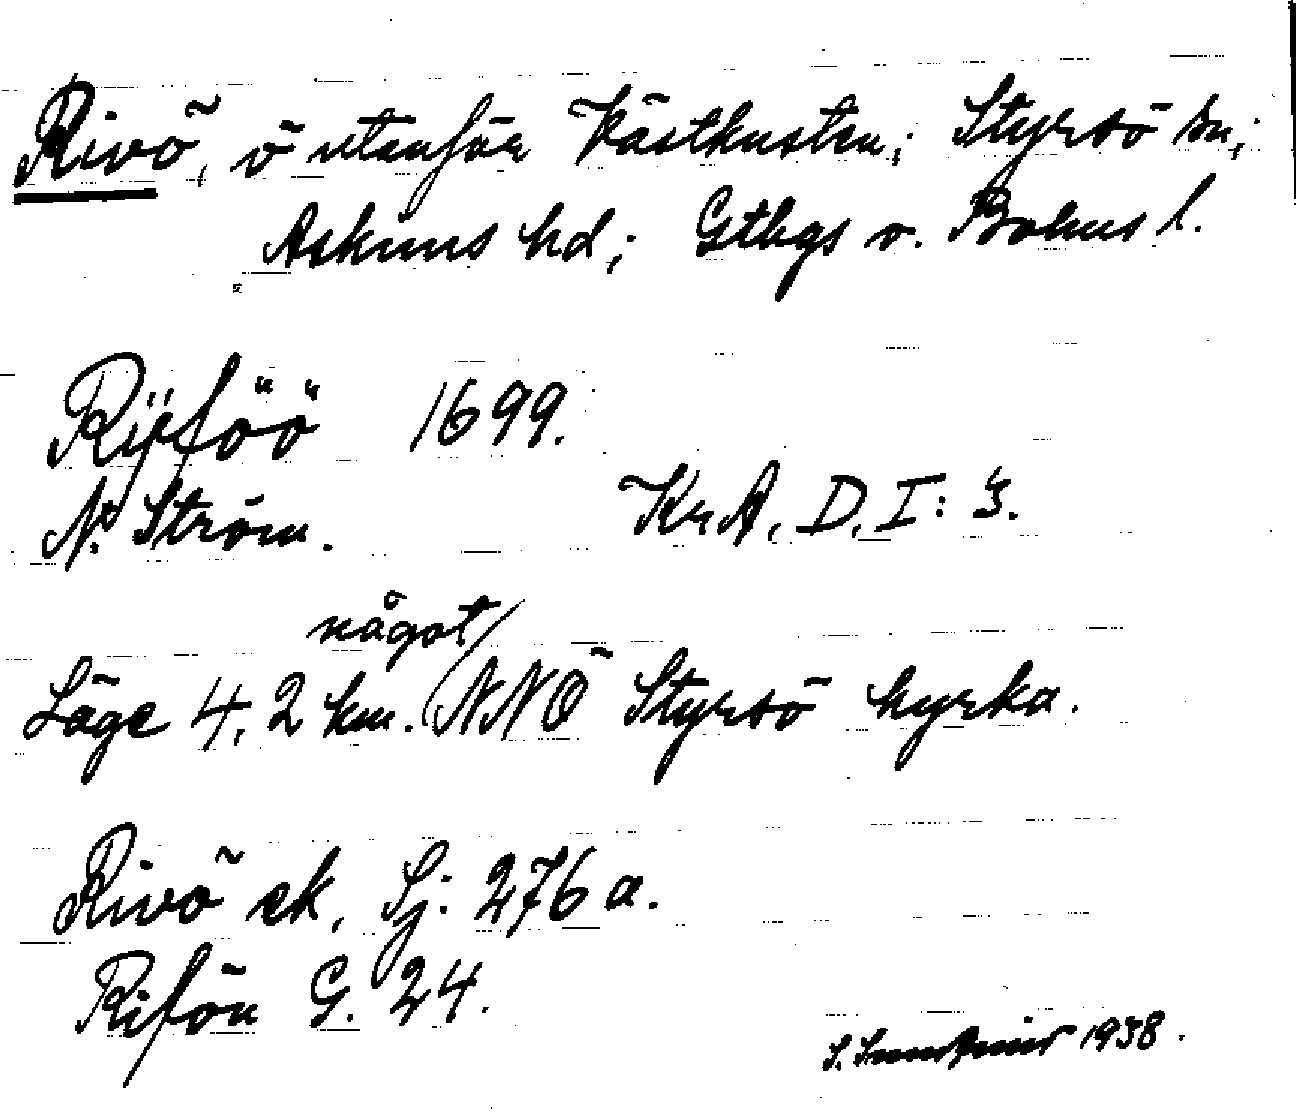 Rivö, ö utanför Västkusten; Styrsö sn;
Askims hd; Gtbgs o. Bohus l.
Rÿföö 1699.
N. Ström. KrA, D. I: 3.
något
Läge 4,2 km. NNÖ Styrsö kyrka.
Rivö ek, Sj: 276 a.
Rifön G. 24.
S. 1938.